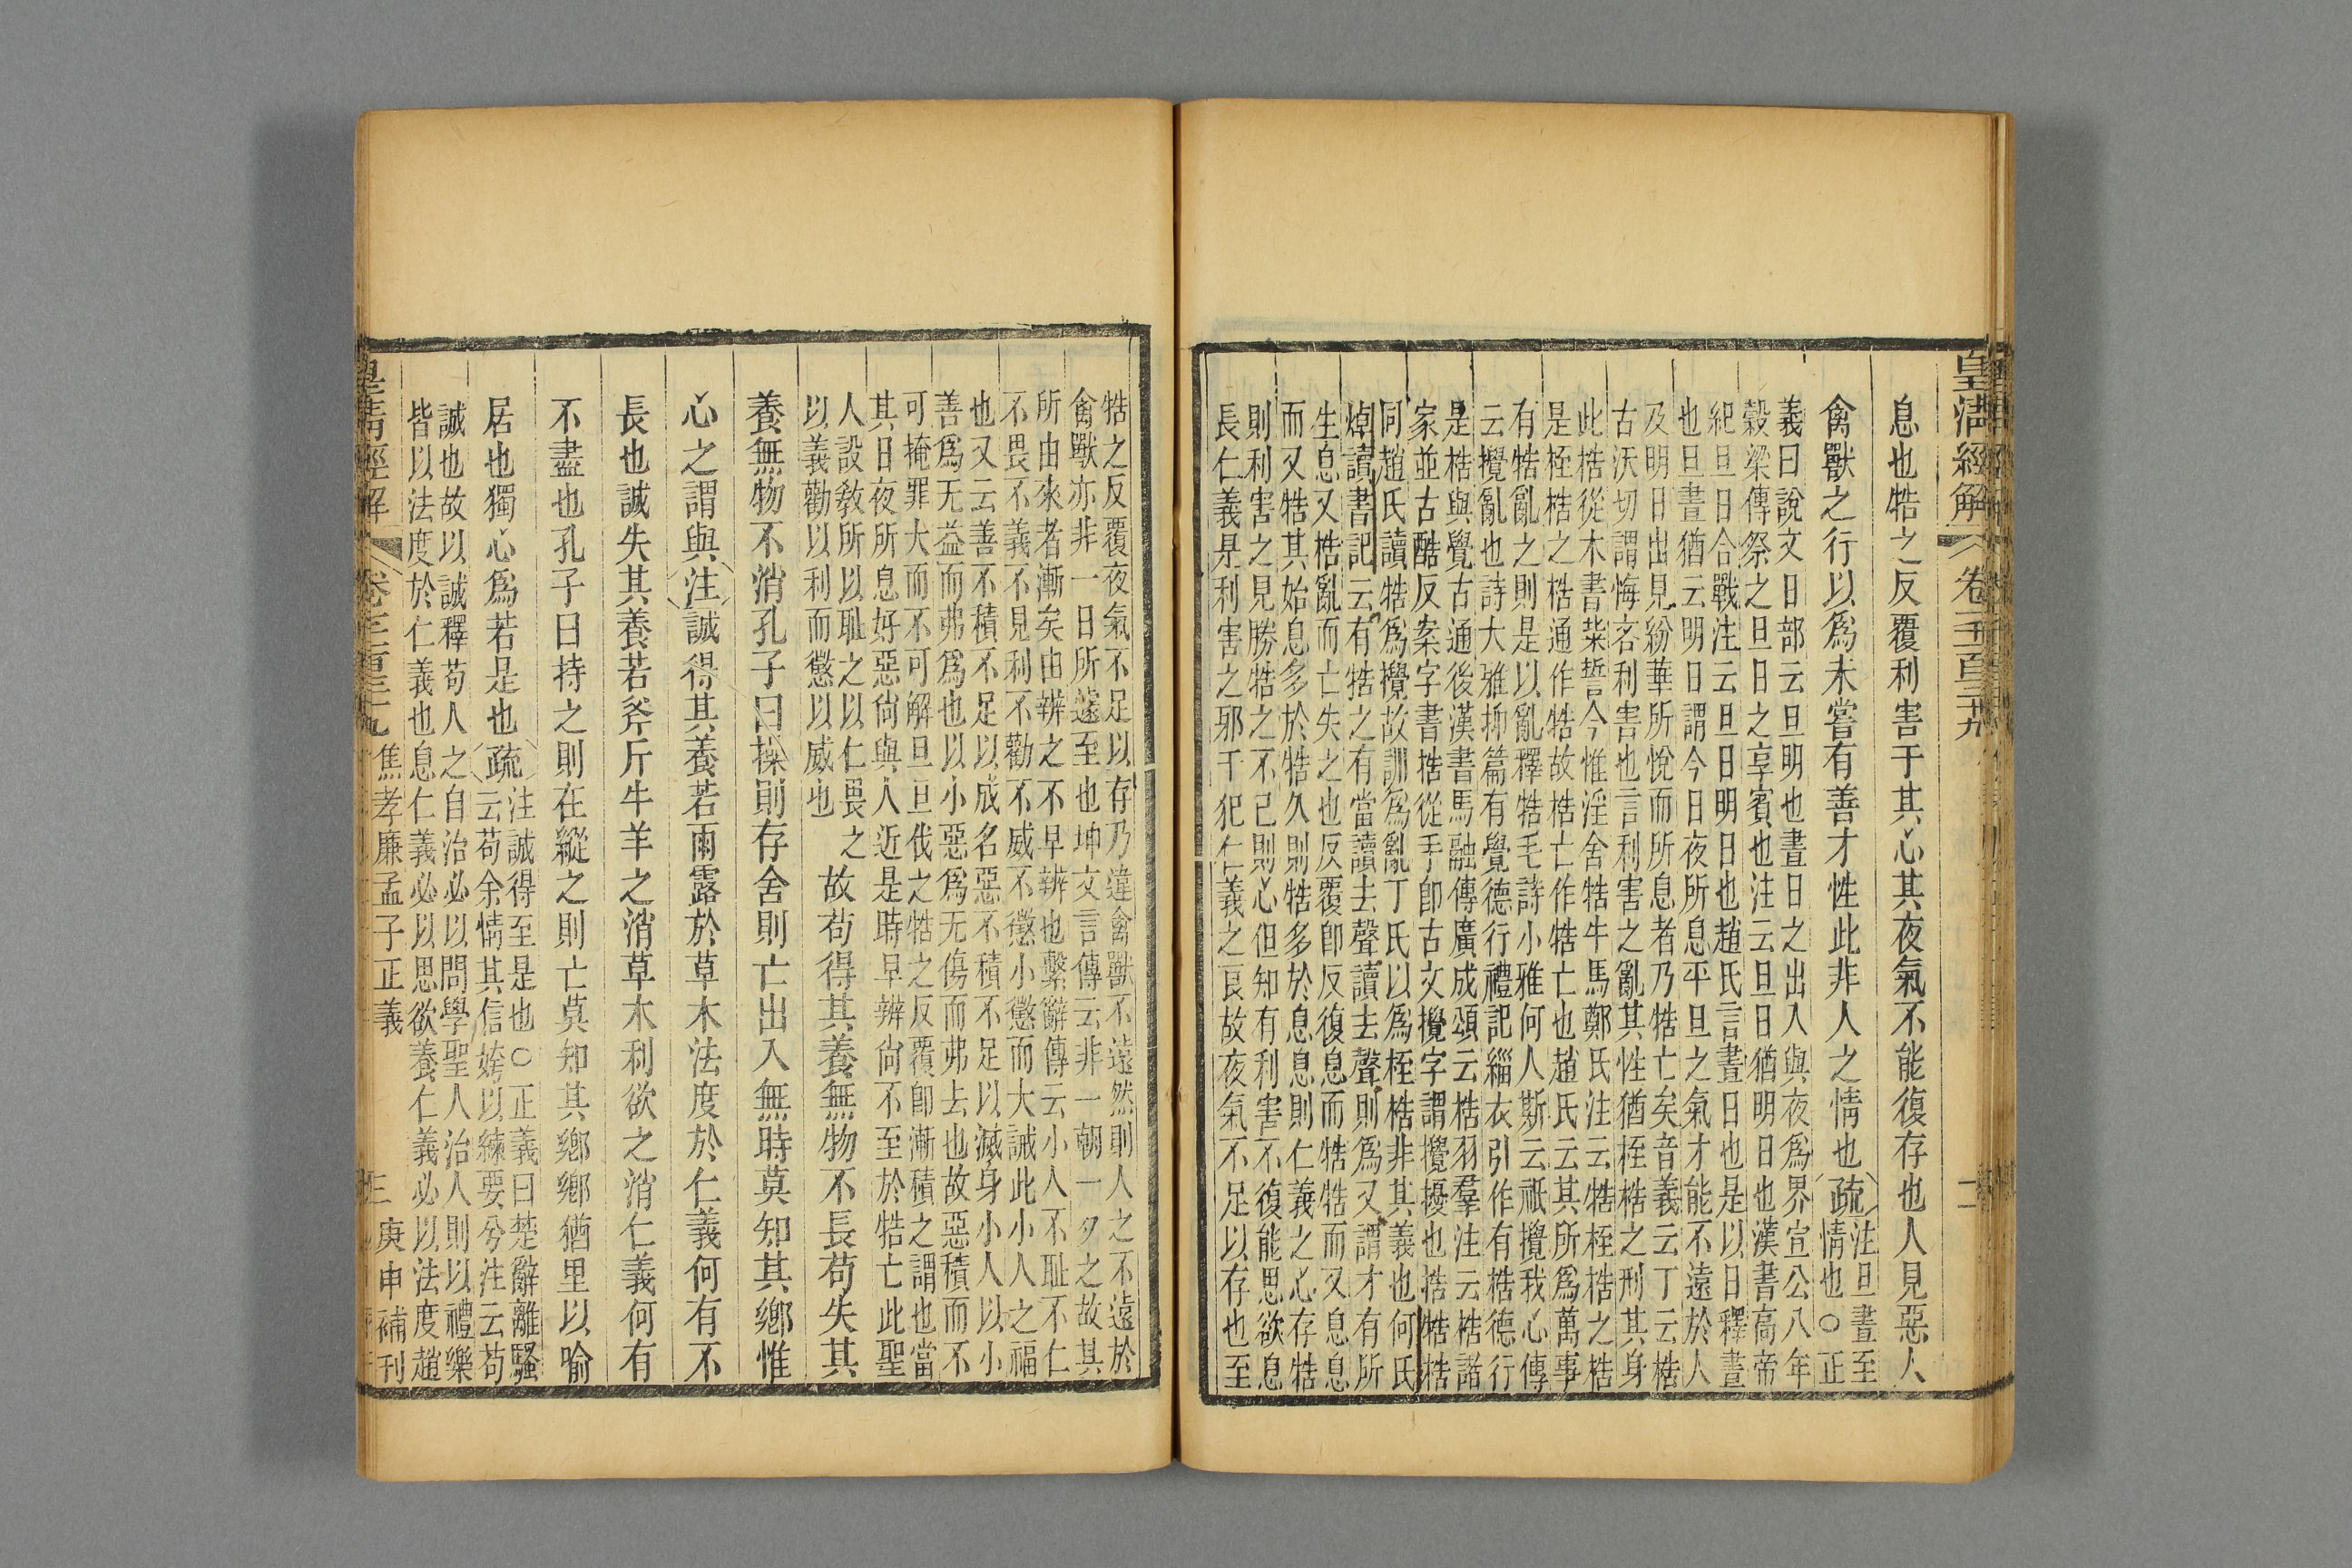 皇清經解 卷千百三十九 二
息也牿之反覆利害于其心其夜氣不能復存也人見惡人
禽獸之行以爲未嘗有善才性此非人之情也疏
注旦晝至
情也○正
義曰說文日部云旦明也晝日之出入與夜爲界宣公八年
穀梁傳祭之旦日之享賓也注云旦日猶明日也漢書高帝
紀旦日合戰注云旦日明日也趙氏言晝日也是以日釋晝
也旦晝猶云明日謂今日夜所息平旦之氣才能不遠於人
及明日出見紛華所悅而所息者乃牿亡矣音義云丁云梏
古沃切謂悔吝利害也言利害之亂其性猶桎梏之刑其身
此梏從木書柴誓今惟淫舍牿牛馬鄭氏注云牿桎梏之梏
是桎梏之梏通作牿故梏亡作牿亡也趙氏云其所爲萬事
有牿亂之則是以亂釋牿毛詩小雅何人斯云祇攪我心傳
云攪亂也詩大雅抑篇有覺德行禮記緇衣引作有梏德行
是梏與覺古通後漢書馬融傳廣成頌云梏羽羣注云梏諧
家並古酷反案字書捁從手卽古文攪字謂攪擾也捁牿梏
同趙氏讀牿爲攪故訓爲亂丁氏以爲桎梏非其義也何氏
焯讀書記云有牿之有當讀去聲讀去聲則爲又謂才有所
生息又梏亂而亡失之也反覆卽反復息而牿牿而又息息
而又牿其始息多於牿久則牿多於息息則仁義之心存牿
則利害之見勝牿之不已則心但知有利害不復能思欲息
長仁義是利害之邪干犯仁義之良故夜氣不足以存也至
牿之反覆夜氣不足以存乃違禽獸不遠然則人之不遠於
禽獸亦非一日所遠至也坤文言傳云非一朝一夕之故其
所由來者漸矣由辨之不早辨也繫辭傳云小人不恥不仁
不畏不義不見利不勸不威不懲小懲而大誡此小人之福
也又云善不積不足以成名惡不積不足以滅身小人以小
善爲无益而弗爲也以小惡爲无傷而弗去也故惡積而不
可掩罪大而不可解旦旦伐之牿之反覆卽漸積之謂也當
其日夜所息好惡尙與人近是時早辨尙不至於牿亡此聖
人設敎所以恥之以仁畏之
以義勸以利而懲以威也
故苟得其養無物不長苟失其
養無物不消孔子曰操則存舍則亡出入無時莫知其鄉惟
心之謂與注誠得其養若雨露於草木法度於仁義何有不
長也誠失其養若斧斤牛羊之消草木利欲之消仁義何有
不盡也孔子曰持之則在縱之則亡莫知其鄉鄉猶里以喻
居也獨心爲若是也疏
注誠得至是也○正義曰楚辭離騷
云苟余情其信姱以練要兮注云苟
誠也故以誠釋苟人之自治必以問學聖人治人則以禮樂
皆以法度於仁義也息仁義必以思欲養仁義必以法度趙
皇淸經解 卷千百三十九 焦孝廉孟子正義 三 庚申補刊